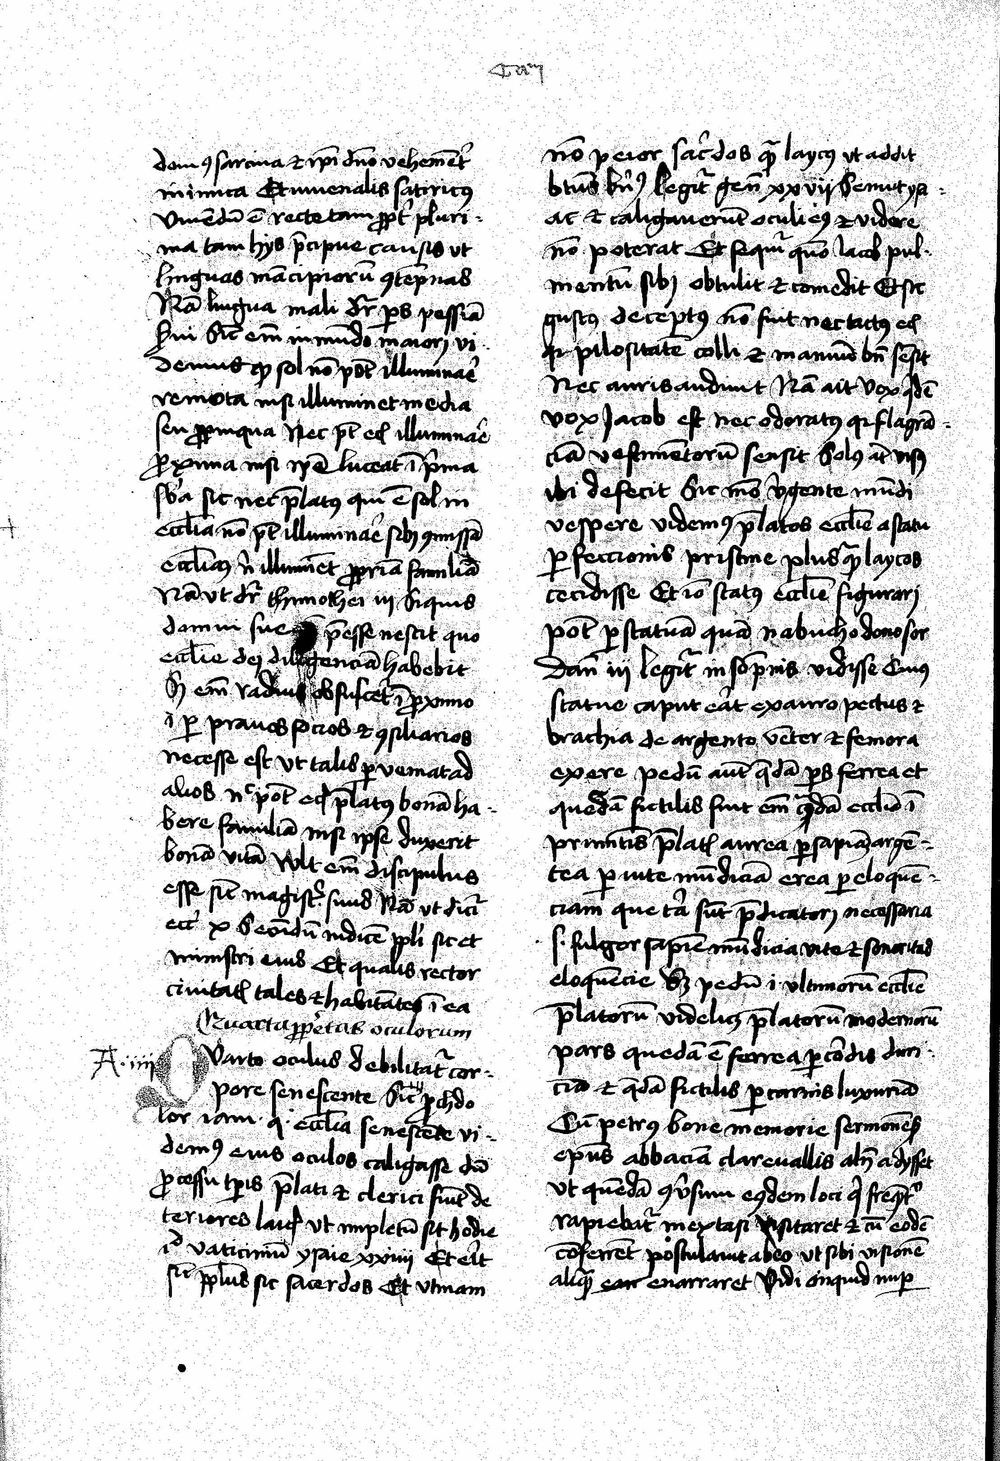 Cam
dom9 sarcina et ipi dno vehement
inimica Et iuvenalis satiricus
Vivendu e recte tam propt pluri-
ma tam hys precipue causis ut
linguas mancipioru contempnas
Na lingua mali dr ps pessia
servi Sic em in mundo maiori vi-
demus quod sol no pot illuminare
remota nisi illuminet media
seu propinqua Nec pt ecia illuminare
proxima nisi ipe luceat i prima
spera sic nec platus qui e sol in
ecclia no pt illuminare sibi comissa
eccliam n illuminet propria familia
Na ut dr thimothei iii Siquis
domui sue preesse nescit quo
ecclie dei diligencia habebit
Si em radius obfuscetur i proximo
i per pravos socios et consiliarios
necesse est ut talis perveniat ad
alios Nec pot ecia platus bona ha-
bere familia nisi ipse duxerit
bona vita Vult em discipulus
esse sic magister suus Na ut dicit
ecc x Secundu iudice ppli sic et
ministri eius Et qualis rector
civitatis tales et habitantes i ea
Quarta proprietas oculorum
A iiii Quarto oculus debilitatur cor-
pore senescente Sic prochdo
lor iam q ecclia senescente vi-
dem9 eius oculos caligasse du
processu tpis plati et clerici sunt de
teriores laicis ut impletu sit hodie
id vaticiniu ysaie xxiiii Et erit
sic pplus sic sacerdos Et utinam
no peior sacdos qua laycus ut addit
btus ber9 Legitur gen xxvii Senuit ysa-
ac et caligaverut oculi ei9 et videre
no poterat Et sequitur quo Iacob pul-
mentu sibi obtulit et comedit Et sic
gustus deceptus no fuit nec tactus ecia
qr pilositate colli et manuu bn sesit
Nec auris audivit Na ait Vox qde
vox Jacob est nec odoratus qr flagra-
cia vestimentoru sensit Solus at visus
ibi defecit Sic mo urgente mudi
vespere videm9 platos ecclie a statu
perfeccionis pristine plusqua laycos
cecidisse Et io status ecclie figurari
pot per statua qua nabuchodonosor
Dan iii legitur in sopnis vidisse Cuius
statue caput erat ex auro pectus et
brachia de argento venter et femora
ex ere pedu aut qda ps ferrea et
queda fictilis fuit em quoda ecclia i
primitivis platis aurea per sapiam argen-
tea per vite mudicia erea per eloquen-
ciam que tria sut pdicatori necessaria
s. fulgor sapie mudicia vite et sonoritas
eloquencie Sed pedu i ultimoru ecclie
platoru videlicet platoru modernoru
pars queda e ferrea per cordis duri-
cia et qda fictilis per carnis luxuria
Cu petrus bone memorie sermones
epus abbacia clarevallis aln adysset
ut quenda conversum eiusdem loci qui frequenter
rapiebatur in extasi visitaret et cu eode
coferret postulavit ab eo ut sibi visione
aliqua enarraret Vidi inquid nup